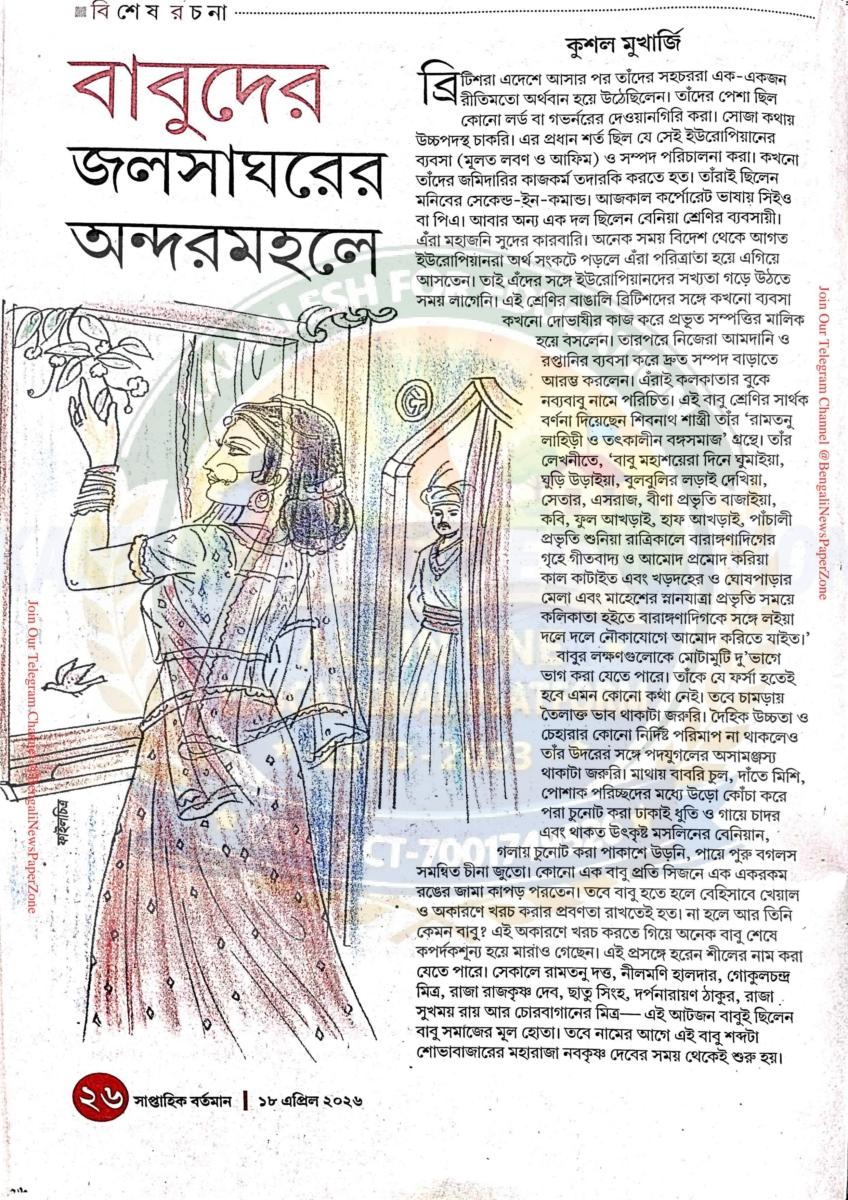 বিশেষ রচনা
বাবুদের
জলসাঘরের
অন্দরমহলে
কুশল মুখার্জি
ব্রিটিশরা এদেশে আসার পর তাঁদের সহচররা এক-একজন
রীতিমতো অর্থবান হয়ে উঠেছিলেন। তাঁদের পেশা ছিল
কোনো লর্ড বা গভর্নরের দেওয়ানগিরি করা। সোজা কথায়
উচ্চপদস্থ চাকরি। এর প্রধান শর্ত ছিল যে সেই ইউরোপিয়ানের
ব্যবসা (মূলত লবণ ও আফিম) ও সম্পদ পরিচালনা করা। কখনো
তাঁদের জমিদারির কাজকর্ম তদারকি করতে হত। তাঁরাই ছিলেন
মনিবের সেকেন্ড-ইন-কমান্ড। আজকাল কর্পোরেট ভাষায় সিইও
বা পিএ। আবার অন্য এক দল ছিলেন বেনিয়া শ্রেণির ব্যবসায়ী।
এঁরা মহাজনি সুদের কারবারি। অনেক সময় বিদেশ থেকে আগত
ইউরোপিয়ানরা অর্থ সংকটে পড়লে এঁরা পরিত্রাতা হয়ে এগিয়ে
আসতেন। তাই এঁদের সঙ্গে ইউরোপিয়ানদের সখ্যতা গড়ে উঠতে
সময় লাগেনি। এই শ্রেণির বাঙালি ব্রিটিশদের সঙ্গে কখনো ব্যবসা
কখনো দোভাষীর কাজ করে প্রভূত সম্পত্তির মালিক
হয়ে বসলেন। তারপরে নিজেরা আমদানি ও
রপ্তানির ব্যবসা করে দ্রুত সম্পদ বাড়াতে
আরম্ভ করলেন। এঁরাই কলকাতার বুকে
নব্যবাবু নামে পরিচিত। এই বাবু শ্রেণির সার্থক
বর্ণনা দিয়েছেন শিবনাথ শাস্ত্রী তাঁর ‘রামতনু
লাহিড়ী ও তৎকালীন বঙ্গসমাজ’ গ্রন্থে। তাঁর
লেখনীতে, ‘বাবু মহাশয়েরা দিনে ঘুমাইয়া,
ঘুড়ি উড়াইয়া, বুলবুলির লড়াই দেখিয়া,
সেতার, এসরাজ, বীণা প্রভৃতি বাজাইয়া,
কবি, ফুল আখড়াই, হাফ আখড়াই, পাঁচালী
প্রভৃতি শুনিয়া রাত্রিকালে বারাঙ্গণাদিগের
গৃহে গীতবাদ্য ও আমোদ প্রমোদ করিয়া
কাল কাটাইত এবং খড়দহের ও ঘোষপাড়ার
মেলা এবং মাহেশের স্নানযাত্রা প্রভৃতি সময়ে
কলিকাতা হইতে বারাঙ্গণাদিগকে সঙ্গে লইয়া
দলে দলে নৌকাযোগে আমোদ করিতে যাইত।’
বাবুর লক্ষণগুলোকে মোটামুটি দু’ভাগে
ভাগ করা যেতে পারে। তাঁকে যে ফর্সা হতেই
হবে এমন কোনো কথা নেই। তবে চামড়ায়
তৈলাক্ত ভাব থাকাটা জরুরি। দৈহিক উচ্চতা ও
চেহারার কোনো নির্দিষ্ট পরিমাপ না থাকলেও
তাঁর উদরের সঙ্গে পদযুগলের অসামঞ্জস্য
থাকাটা জরুরি। মাথায় বাবরি চুল, দাঁতে মিশি,
পোশাক পরিচ্ছদের মধ্যে উড়ো কোঁচা করে
পরা চুনোট করা ঢাকাই ধুতি ও গায়ে চাদর
এবং থাকত উৎকৃষ্ট মসলিনের বেনিয়ান,
গলায় চুনোট করা পাকাশে উড়নি, পায়ে পুরু বগলস
সমন্বিত চীনা জুতো। কোনো এক বাবু প্রতি সিজনে এক একরকম
রঙের জামা কাপড় পরতেন। তবে বাবু হতে হলে বেহিসাবে খেয়াল
ও অকারণে খরচ করার প্রবণতা রাখতেই হত। না হলে আর তিনি
কেমন বাবু? এই অকারণে খরচ করতে গিয়ে অনেক বাবু শেষে
কপর্দকশূন্য হয়ে মারাও গেছেন। এই প্রসঙ্গে হরেন শীলের নাম করা
যেতে পারে। সেকালে রামতনু দত্ত, নীলমণি হালদার, গোকুলচন্দ্র
মিত্র, রাজা রাজকৃষ্ণ দেব, ছাতু সিংহ, দর্পনারায়ণ ঠাকুর, রাজা
সুখময় রায় আর চোরবাগানের মিত্র— এই আটজন বাবুই ছিলেন
বাবু সমাজের মূল হোতা। তবে নামের আগে এই বাবু শব্দটা
শোভাবাজারের মহারাজা নবকৃষ্ণ দেবের সময় থেকেই শুরু হয়।
Join Our Telegram Channel @BengaliNewsPaperZone
Join Our Telegram Channel @BengaliNewsPaperZone
২৬ সাপ্তাহিক বর্তমান | ১৮ এপ্রিল ২০২৬